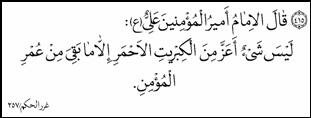 ﴿٤١٥﴾ قَالَ الإِمَامُ أَمِيرُ الْمُؤْمِنِينَ عَلِيٌّ (ع):
لَيْسَ شَيْءٌ أَعَزَّ مِنَ الْكِبْرِيتِ الأَحْمَرِ إِلاَّ مَا بَقِيَ مِنْ عُمْرِ
الْمُؤْمِنِ.
غرر الحكم/٢٥٧